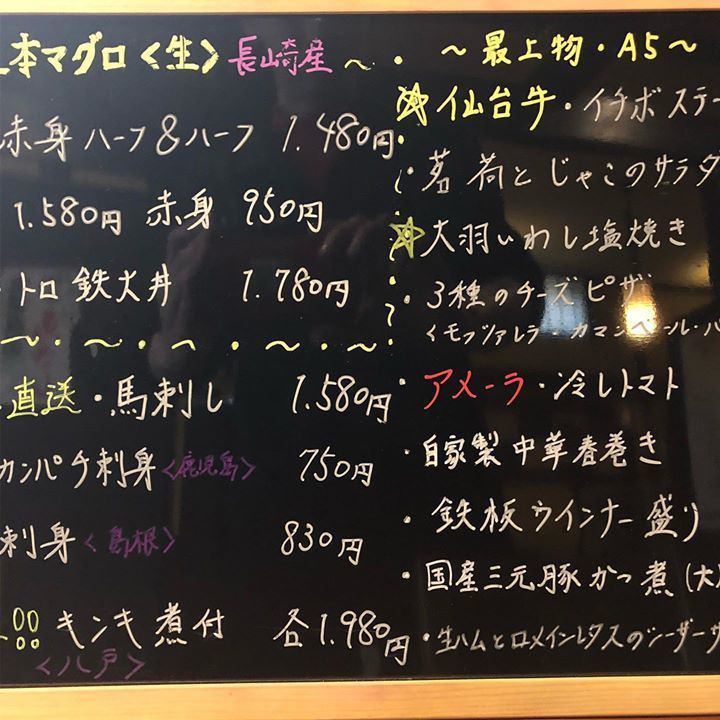 本マグロ〈生〉長崎産~・
赤身ハーフ&ハーフ 1.480円
1.580円 赤身 950円
トロ鉄火丼 1.780円
直送・馬刺し 1.580円
カンパチ刺身〈鹿児島〉 750円
刺身〈島根〉 830円
!! キンキ煮付 各1.980円
〈八戸〉
~最上物・A5~
☆仙台牛・イチボステー
・茗荷とじゃこのサラダ
☆大羽いわし塩焼き
・3種のチーズピザ
〈モッツァレラ・カマンベール・パ
・アメーラ・冷しトマト
・自家製中華春巻き
・鉄板ウインナー盛り
・国産三元豚かつ煮(大
・生ハムとロメインレタスのシーザーサ